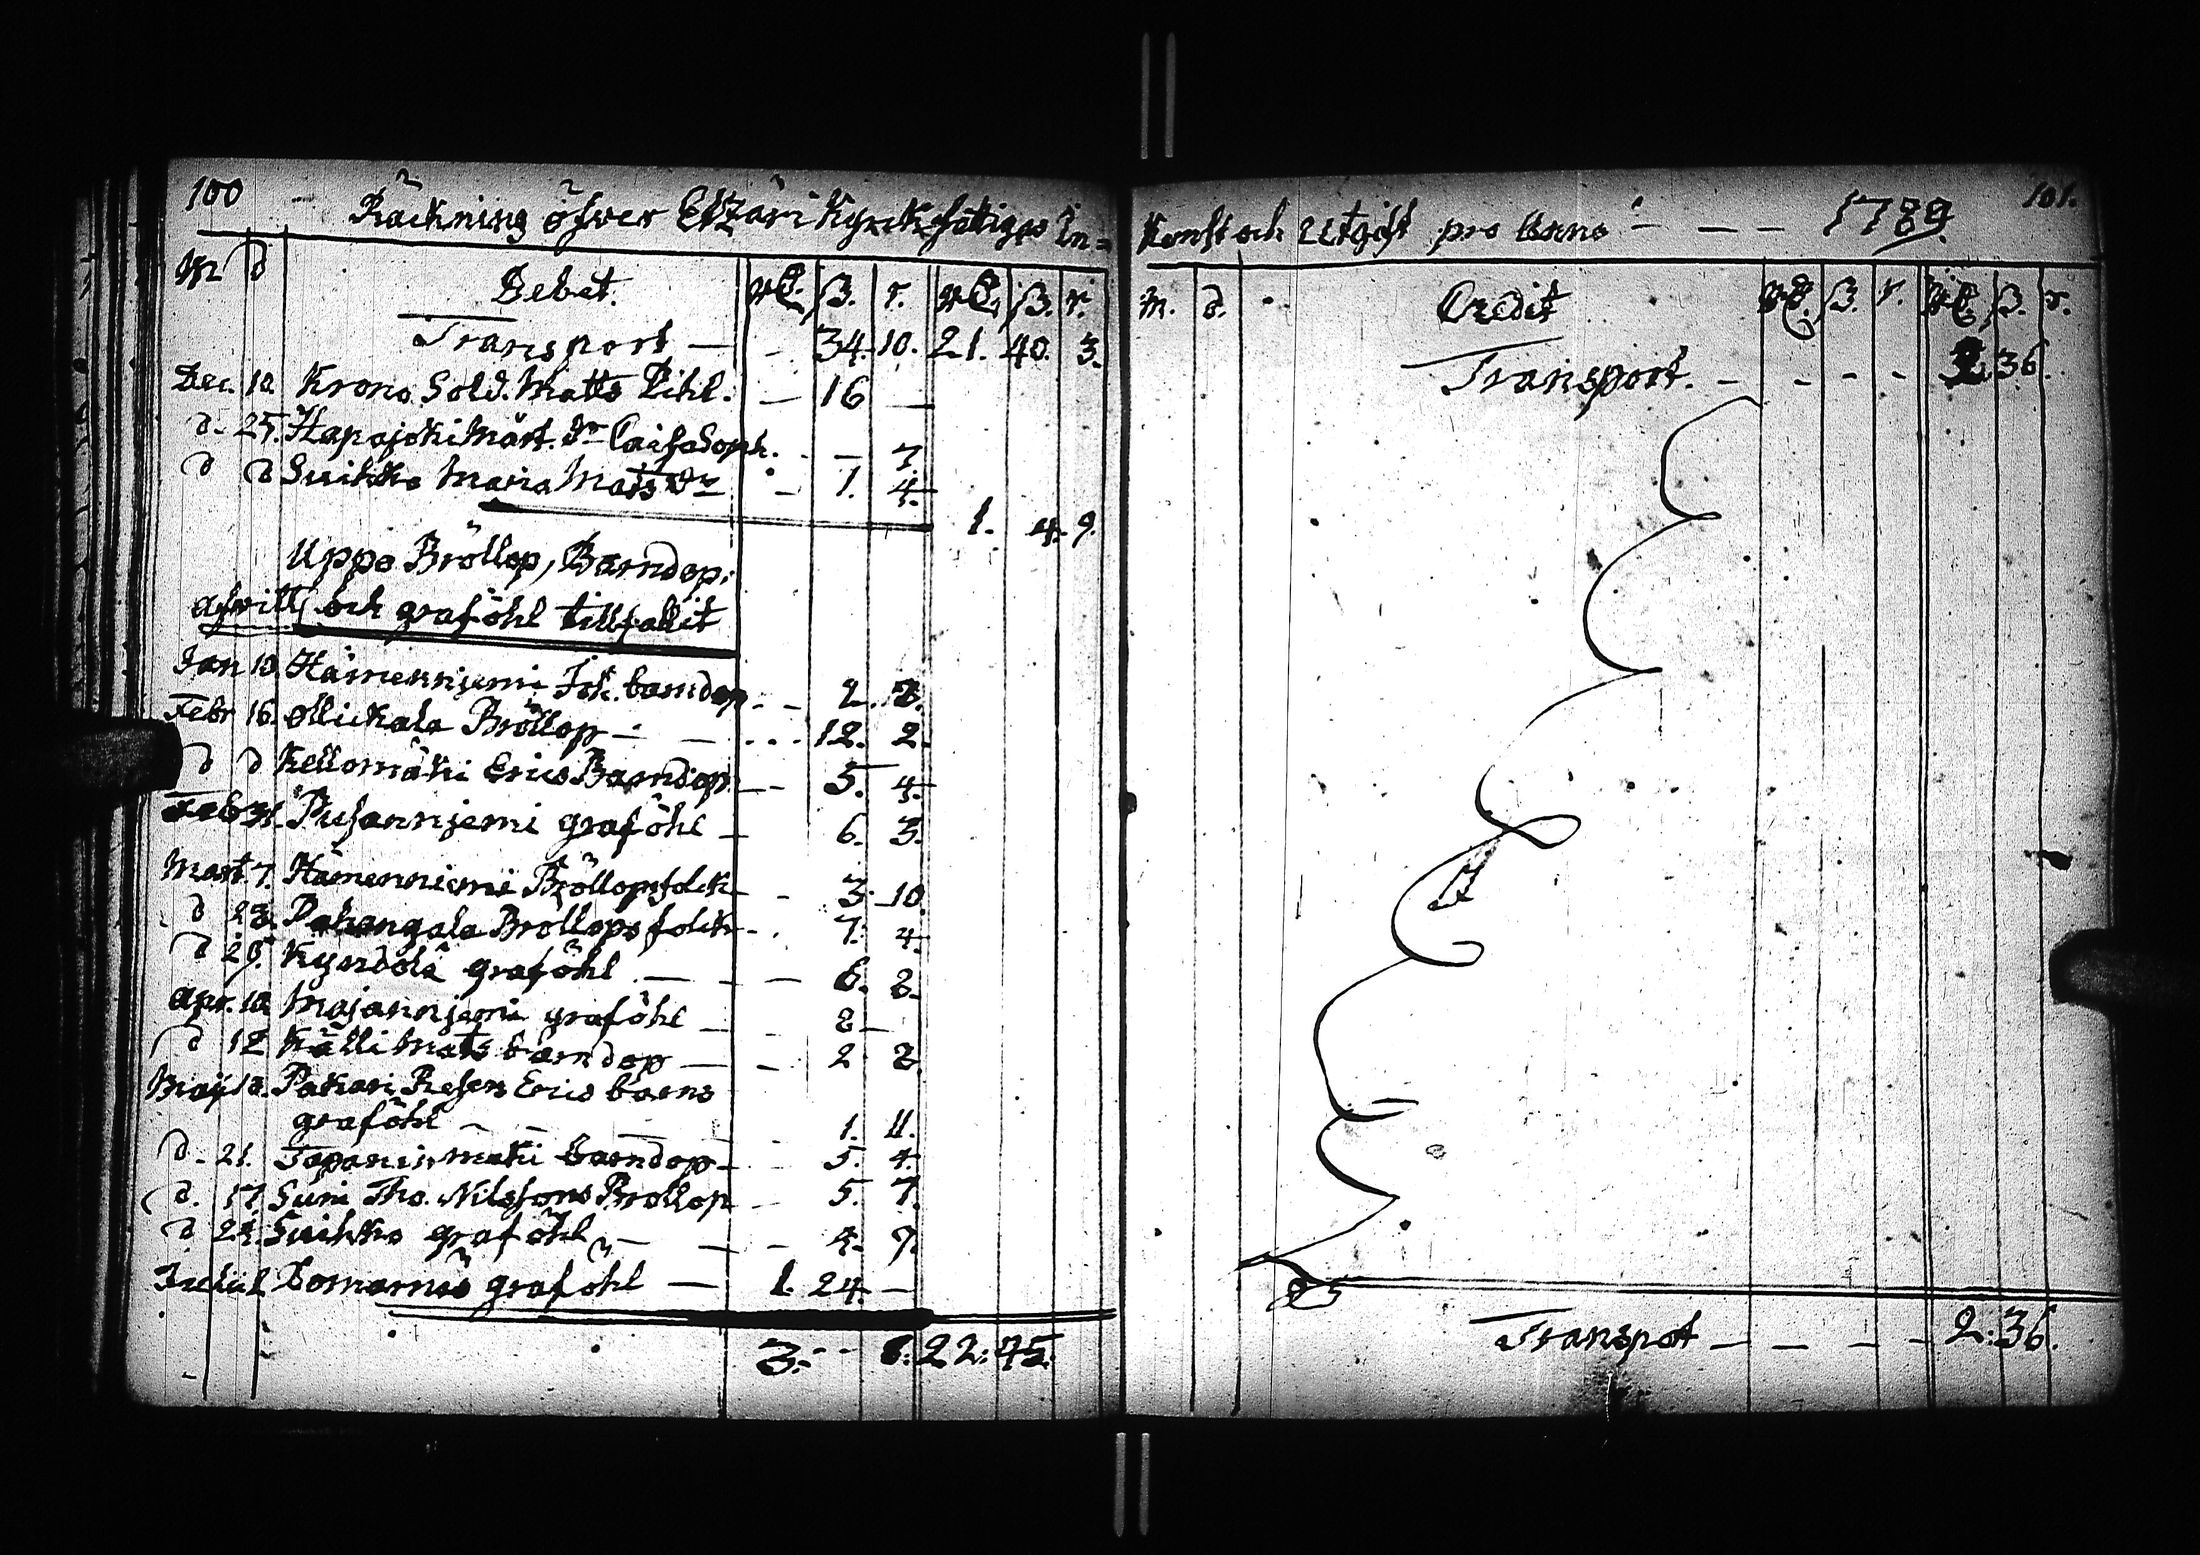 100
Räckning öfver Etzäri Kyrckfattigas In=
M d Debet. Rd. ß. r. Rd. ß. r.
Transport — - 34. 10. 21. 40. 3.
Dec. 10. Krono Sold. Matts Pihl. — 16 —
d. 25. Hapojoki Märt. dr Caisa Soph. - — 7.
d d Suihko Maria Mats dr - 1. 4.
1. 4. 9.
Uppå Bröllop, Barndop,
och graföhl tillfallit
Jan 10. Hämennjemi Joh. barndop - - 2. 8.
Febr 16. Ollickala Bröllop - — ... 12. 2.
d d Kellomäki Erics Barndop — 5. 4.
Feb Pusannjemi graföhl — 6. 3.
Mart. 7. Hämenniemi Bröllopsfolck - 3. 10.
d 23. Pahangala Bröllopsfolck - . 7. 4.
d 25. Kyndölä graföhl — — — 6. 8.
Apr. 10. Majannjemi graföhl — - 8 —
d 12 Källi Mats barndop — — 2 8.
Maij 10. Pakari Resars Erics barns
graföhl — — — - 1. 11.
d. 21. Tapaninmäki barndop - - 5. 4.
d. 17. Suni Tho. Nilssons Bröllop — 5. 7.
d 24. Suihko graföhl — — - 4. 7.
Domarns graföhl — 1. 24. —
3. - - 8. 22. 45.
101.
Komst och Utgift pro Anno — — — 1789.
M. d. Credit Rd. ß. r. Rd. ß. r.
Transport. — - - - 2. 36.
Transpot — — — — 2. 36.